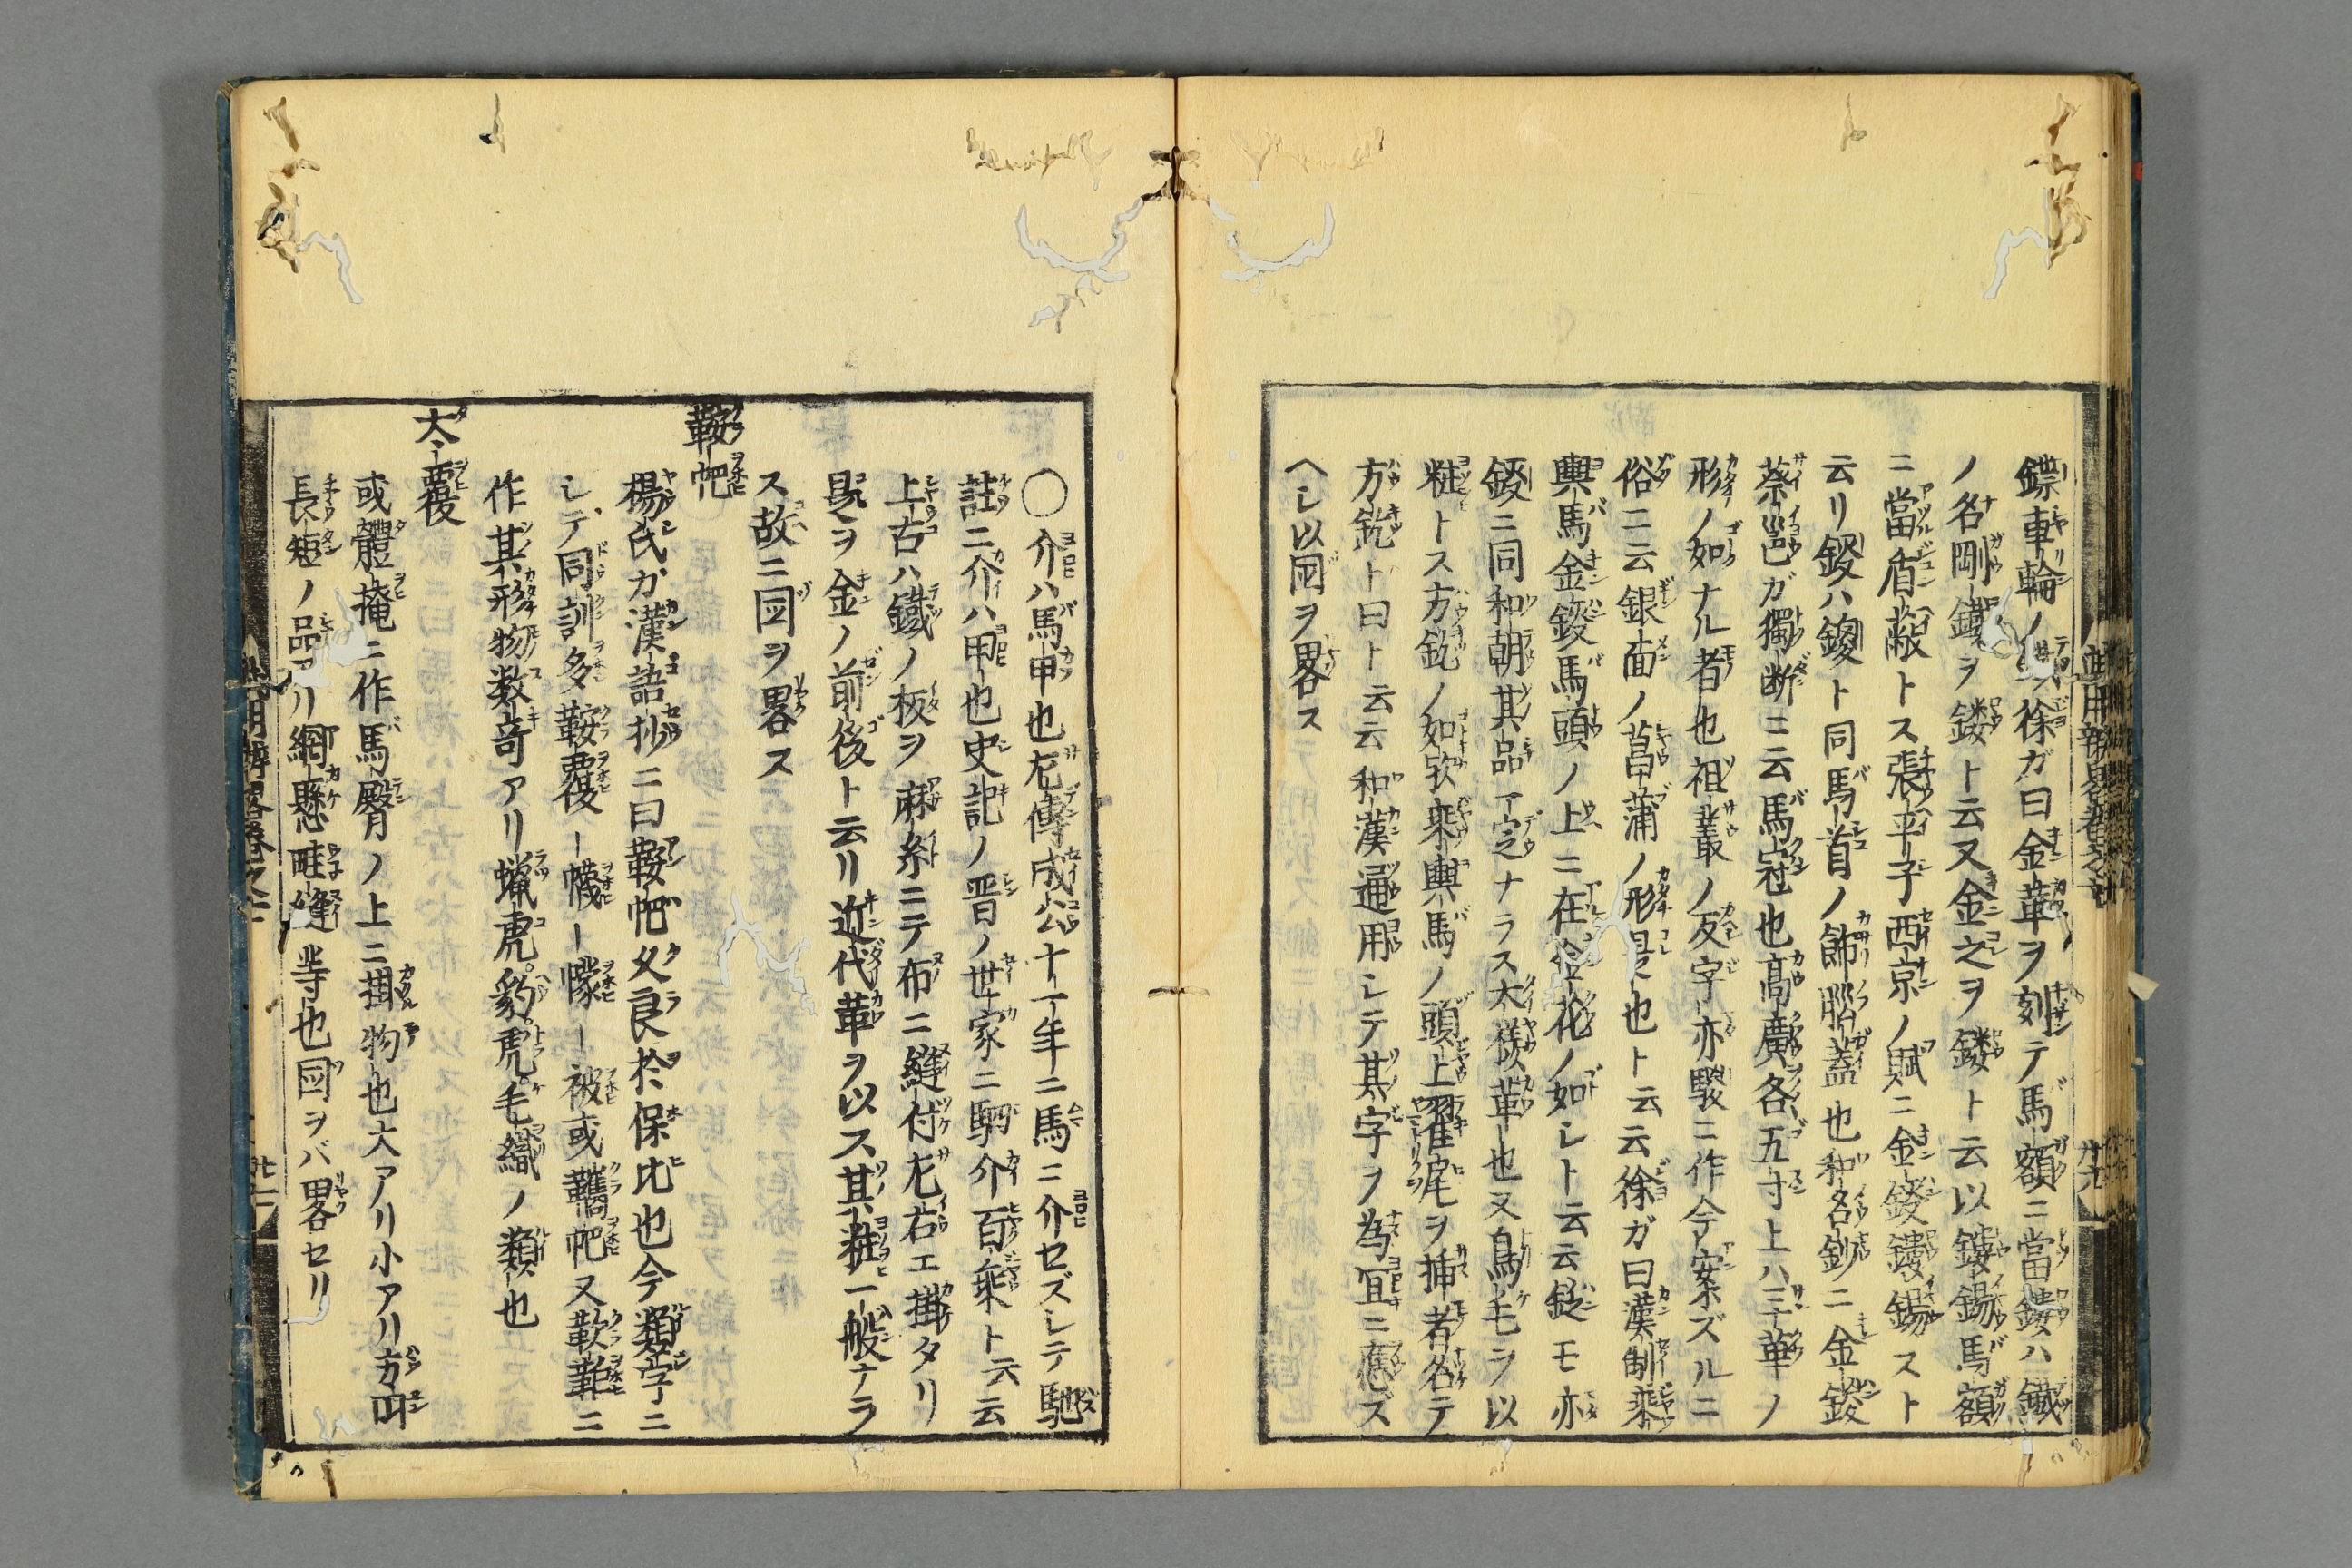 鏢車輪ノ鐵徐ガ曰金華ヲ刻テ馬額ニ當鏤ハ鐵
ノ名剛鐵ヲ鏤ト云又金之ヲ鏤ト云以鏤鍚馬額
ニ當盾敝トス張平子西京ノ賦ニ金鋄鏤鍚スト
云リ鋄ハ鍐ト同馬首ノ飾腦蓋也和名鈔ニ金鋄
蔡邕ガ獨断ニ云馬冠也髙廣各五寸上ハ三華ノ
形ノ如ナル者也祖叢ノ反字亦駿ニ作今案ズルニ
俗ニ云銀面ノ菖蒲ノ形是也ト云云徐ガ曰漢制乘
輿馬金鋄馬頭ノ上ニ在金花ノ如シト云云鋄モ亦
鋄ニ同和朝其品一定ナラス大槩革也又鳥毛ヲ以
粧トス方釳ノ如欤乘輿馬ノ頭上翟尾ヲ挿者名テ
方釳ト曰ト云云和漢通用シテ其字ヲ為宜ニ應ズ
ヘシ以図ヲ畧ス
〇介ハ馬甲也左傳成公十一年ニ馬ニ介セズシテ馳
註ニ介ハ甲也史記ノ晋ノ世家ニ駟介百乘ト云云
上古ハ鐵ノ板ヲ麻糸ニテ布ニ縫付左右エ掛タリ
是ヲ金ノ前後ト云リ近代革ヲ以ス其粧一般ナラ
ス故ニ図ヲ畧ス
鞍帊
楊氏ガ漢語抄ニ曰鞍帊久良於保比也今類字ニ
シテ同訓多鞍覆ー幭ー幪ー被或鞽帊又
作其形物数竒アリ蝋虎豹虎毛織ノ類也
大覆
或體掩ニ作馬臀ノ上ニ掛物也大アリ小アリ方
長短ノ品アリ網懸畦縫䒭也図ヲバ畧セリ